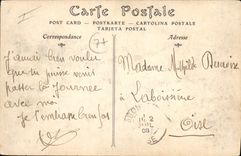 Carte Postale
POST CARD - POSTKARTE - CARTOLINA POSTALE
TARJETA POSTAL
Correspondance
Adresse
77
J'aurai bien voulu
que tu puisse venir
passer la journée
avec moi
Je t'embrasse
Madame
à
Laboissière
Oise